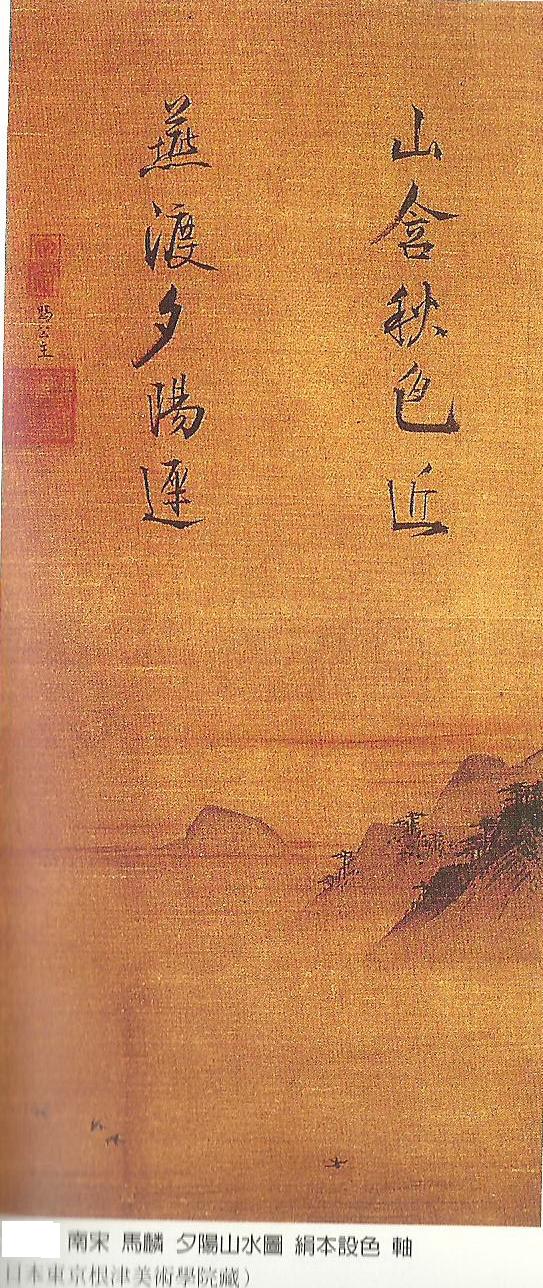 山含秋色近
燕渡夕陽遲
賜公主
南宋 馬麟 夕陽山水圖 絹本設色 軸
日本東京根津美術學院藏）